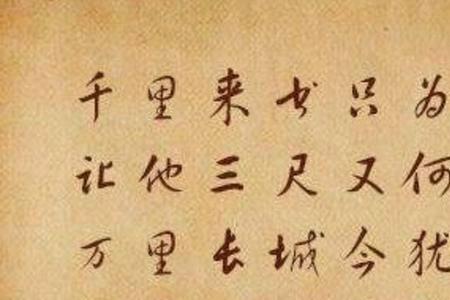 千里来书只为
让他三尺又何
万里长城今犹